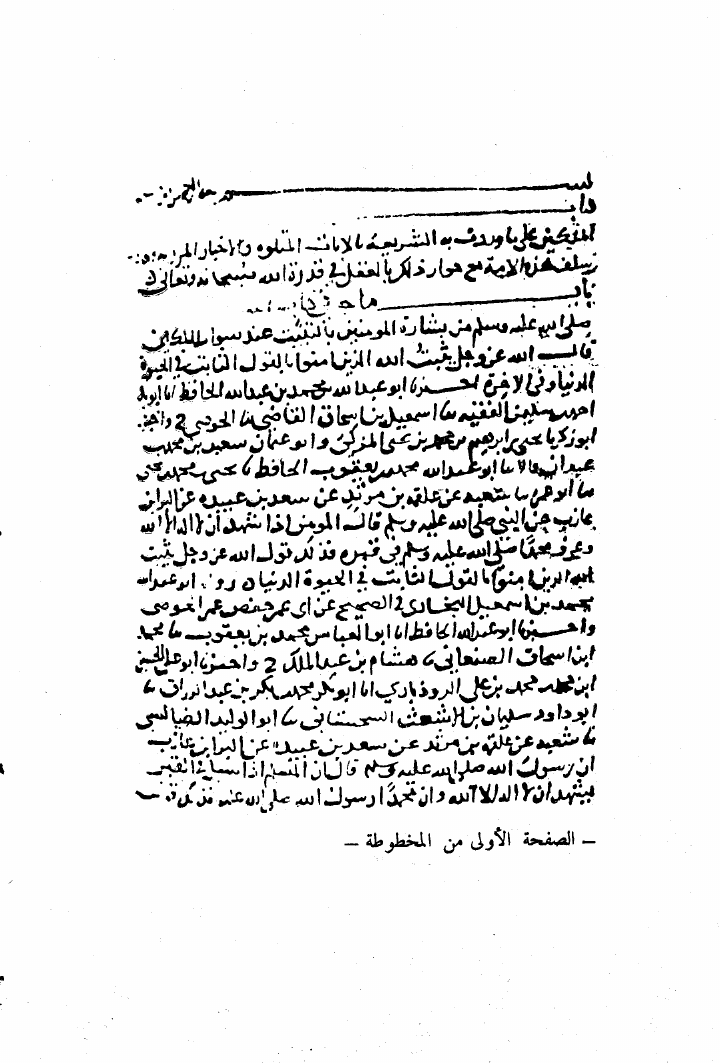 بسم الله الرحمن الرحيم
باب
المكلفين على ما وردت به الشريعة بالايات المتلوه والاخبار المرويه
سلف هذه الامة مع جواز ذلك بالعقل في قدرة الله سبحانه وتعالى
باب ما جا
صلى الله عليه وسلم من بشارة المومنين بالتثبيت عند سوال الملكين
قال الله عز وجل يثبت الله الذين امنوا بالقول الثابت في الحيوة
الدنيا وفي الاخرة ابو عبد الله محمد بن عبدالله الحافظ انا ابو بكر
احمد بن سلمن الفقيه ثنا اسمعيل بن اسحاق القاضي ثنا الحوضي ح واخبرنا
ابو زكريا يحيى بن ابراهيم بن محمد بن يحيى المزكي وابو عثمان سعيد بن محمد بن
عبدان قالا ثنا ابو عبدالله محمد بن يعقوب الحافظ ثنا يحيى بن محمد بن يحيى
ثنا ابو عمر ثنا شعبه عن علقه بن مرثد عن سعد بن عبيده عن البرا بن
عازب عن النبي صلى الله عليه وسلم قال المومن اذا شهد ان لا اله الا الله
وعرف محمدا صلى الله عليه وسلم في قبره فذلك قول الله عز وجل يثبت
الله الذين امنوا بالقول الثابت في الحيوة الدنيا رواه ابو عبدالله
محمد بن اسمعيل البخاري في الصحيح عن ابي عمر حفص بن عمر الحوضي
واخبرنا ابو عبدالله الحافظ انا ابو العباس محمد بن يعقوب ثنا محمد
ابن اسحاق الصنعاني ثنا هشام بن عبد الملك ح واخبرنا ابو علي الحسين
ابن محمد بن محمد بن علي الروذباري انا ابو بكر محمد بن بكر بن عبد الرزاق ثنا
ابو داود سليمان بن الاشعث السجستاني ثنا ابو الوليد الطيالسي
ثنا شعبه عن علقه بن مرثد عن سعد بن عبيده عن البرا بن عازب
ان رسول الله صلى الله عليه وسلم قال ان المسلم اذا سئل في القبر
فيشهد ان لا اله الا الله وان محمدا رسول الله صلى الله عليه فذلك
– الصفحة الأولى من المخطوطة –